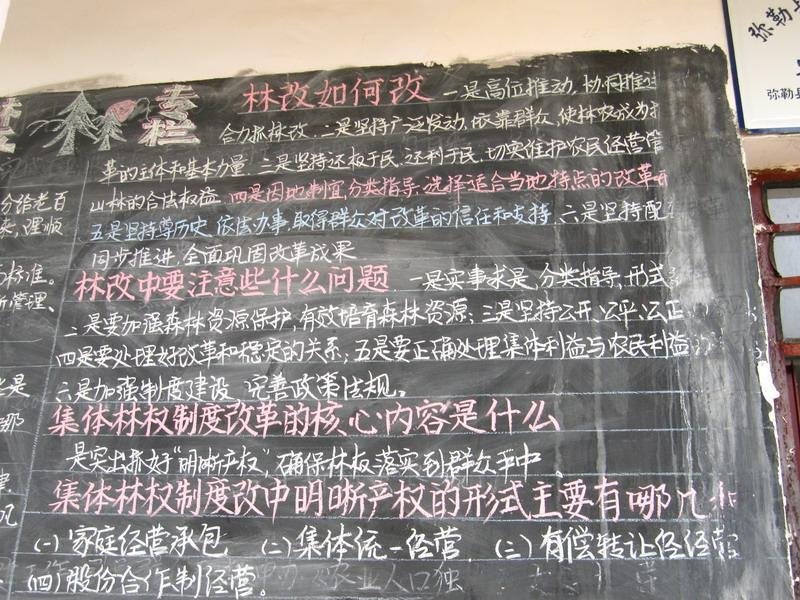 专栏
林改如何改 一是高位推动,协同推进
合力抓林改.二是坚持广泛发动,依靠群众,使林农成为
革的主体和基本力量.三是坚持还权于民,还利于民.切实维护农民经营管
山林的合法权益.四是因地制宜,分类指导,选择适合当地特点的改革
五是坚持尊历史,依法办事,取得群众对改革的信任和支持.六是坚持配
同步推进,全面巩固改革成果
林改中要注意些什么问题.一是实事求是,分类指导,形式
二是要加强森林资源保护,有效培育森林资源;三是坚持公开,公平,公正
四是要处理好改革和稳定的关系;五是要正确处理集体利益与农民利益
六是加强制度建设,完善政策法规。
集体林权制度改革的核心内容是什么
是突出抓好"明晰产权",确保林权落实到群众手中.
集体林权制度改中明晰产权的形式主要有哪几
(一)家庭经营承包 (二)集体统一经营 (三)有偿转让经营
(四)股份合作制经营。
分给老百
理顺
标准。
管理、
是
那
几
弥勒
弥勒县